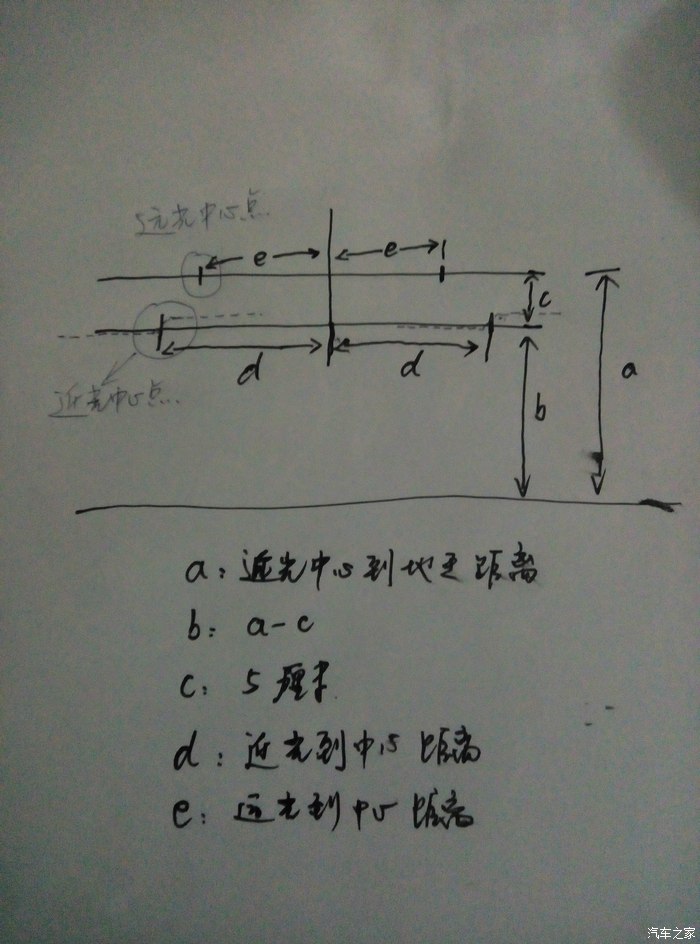 远光中心点
e e
c
d d
a
近光中心点
b
a：近光中心到地面距离
b：a-c
c：5厘米
d：近光到中心距离
e：远光到中心距离
汽车之家